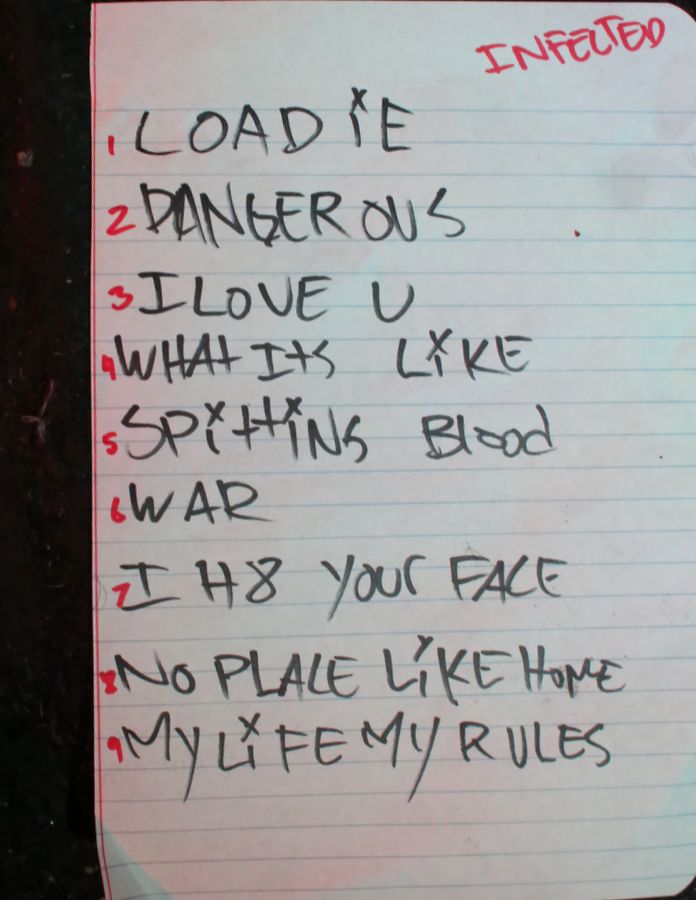 INFECTED
1 LOADiE
2 DANGEROUS
3 I LOVE U
4 WHAt ItS LiKE
5 SPittiNG Blood
6 WAR
7 I H8 YOUr FACE
8 NO PLACE LiKE HOME
9 MY LiFE MY RULES